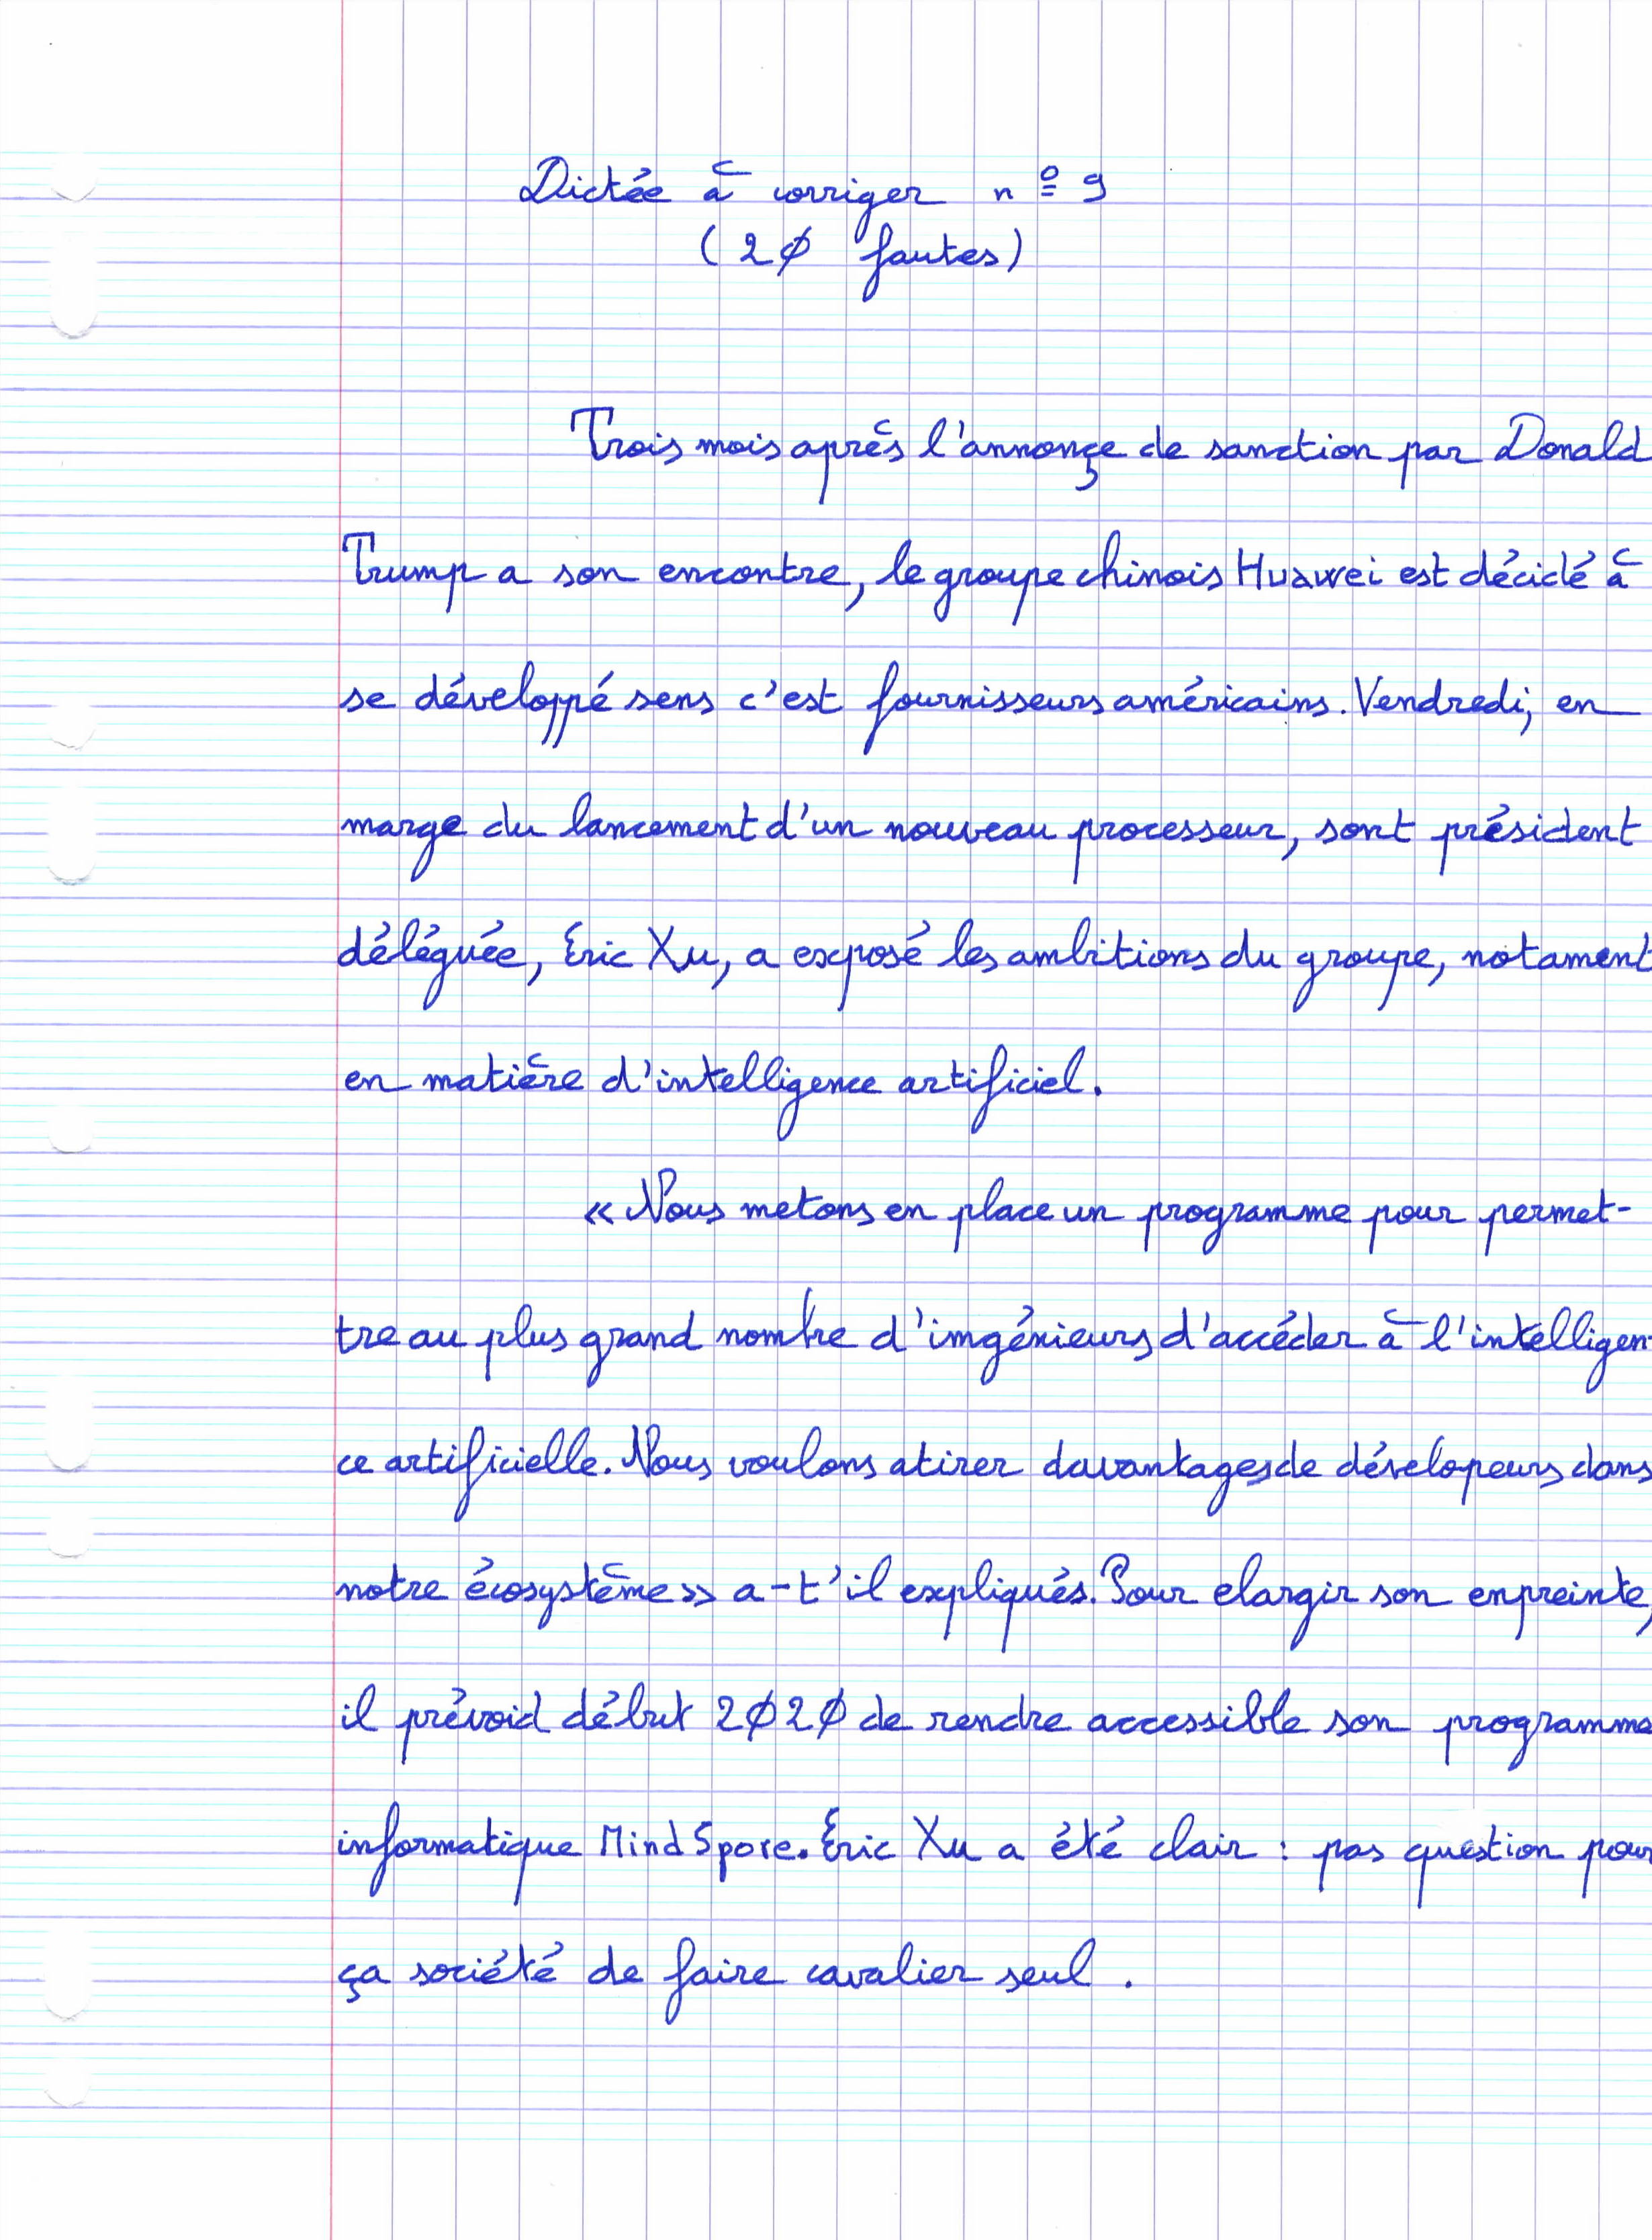 Dictée à corriger n° 9
(20 fautes)
Trois mois après l'annonçe de sanction par Donald
Trump a son encontre, le groupe chinois Huawei est décidé à
se développé sens c'est fournisseurs américains. Vendredi, en
marge du lancement d'un nouveau processeur, sont président
déléguée, Eric Xu, a exposé les ambitions du groupe, notament
en matière d'intelligence artificiel.
« Nous metons en place un programme pour permet-
tre au plus grand nombre d'imgénieurs d'accéder à l'intelligen-
ce artificielle. Nous voulons atirer davantages de dévelopeurs dans
notre écosystème » a-t'il expliqués. Pour elargir son enpreinte,
il prévoid début 2020 de rendre accessible son programme
informatique MindSpore. Eric Xu a été clair : pas question pour
ça société de faire cavalier seul.